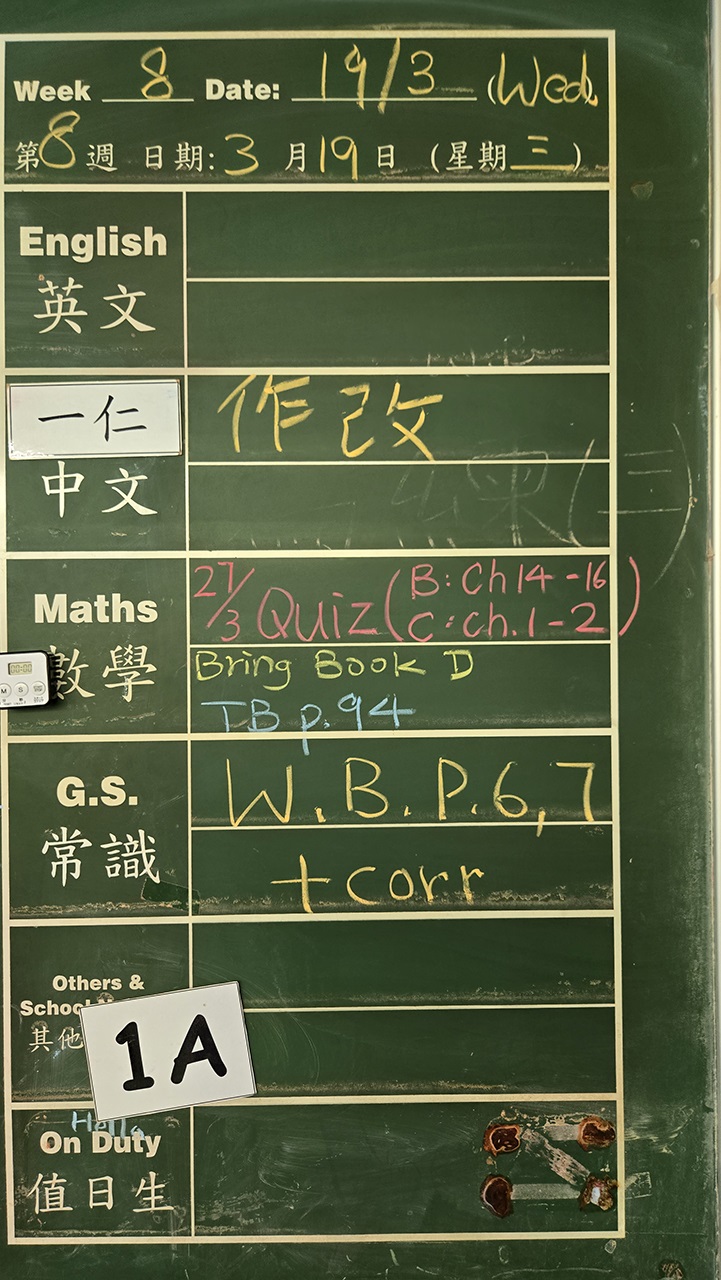 Week 8 Date: 19/3 (Wed.
第8週 日期:3月19日 (星期三)
English
英文
一仁
作改
中文
Maths
數學
27/3 Quiz (B: Ch 14 - 16
C: Ch. 1 - 2)
Bring Book D
TB p. 94
G.S.
常識
W.B.P.6,7
+ corr
Others &
School
其他
1A
Hello
On Duty
值日生